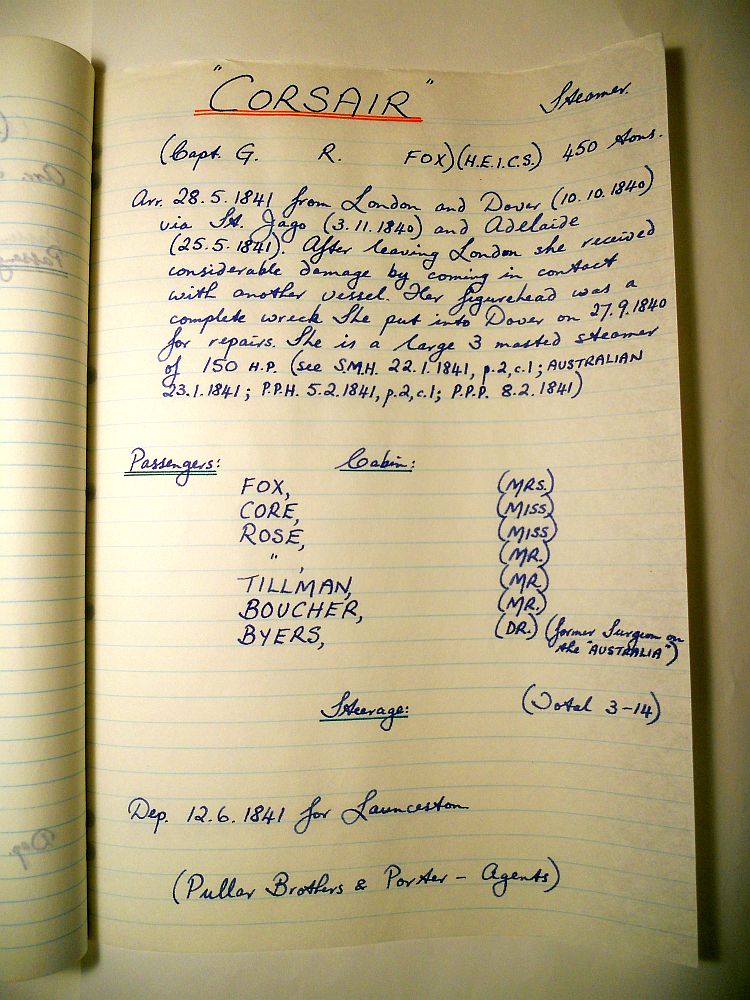 "CORSAIR" Steamer.
(Capt. G. R. FOX) (H.E.I.C.S.) 450 tons.
Arr. 28.5.1841 from London and Dover (10.10.1840)
via St. Jago (3.11.1840) and Adelaide
(25.5.1841). After leaving London she received
considerable damage by coming in contact
with another vessel. Her figurehead was a
complete wreck. She put into Dover on 27.9.1840
for repairs. She is a large 3 masted steamer
of 150 H.P. (see S.M.H. 22.1.1841, p.2,c.1; AUSTRALIAN
23.1.1841; P.P.H. 5.2.1841, p.2,c.1; P.P.P. 8.2.1841)
Passengers: Cabin:
FOX, (MRS.)
CORE, (MISS)
ROSE, (MISS)
" , (MR.)
TILLMAN, (MR.)
BOUCHER, (MR.)
BYERS, (DR.) (former Surgeon on
the "AUSTRALIA")
Steerage: (Total 3-14)
Dep. 12.6.1841 for Launceston
(Pullar Brothers & Porter - Agents)
Dep